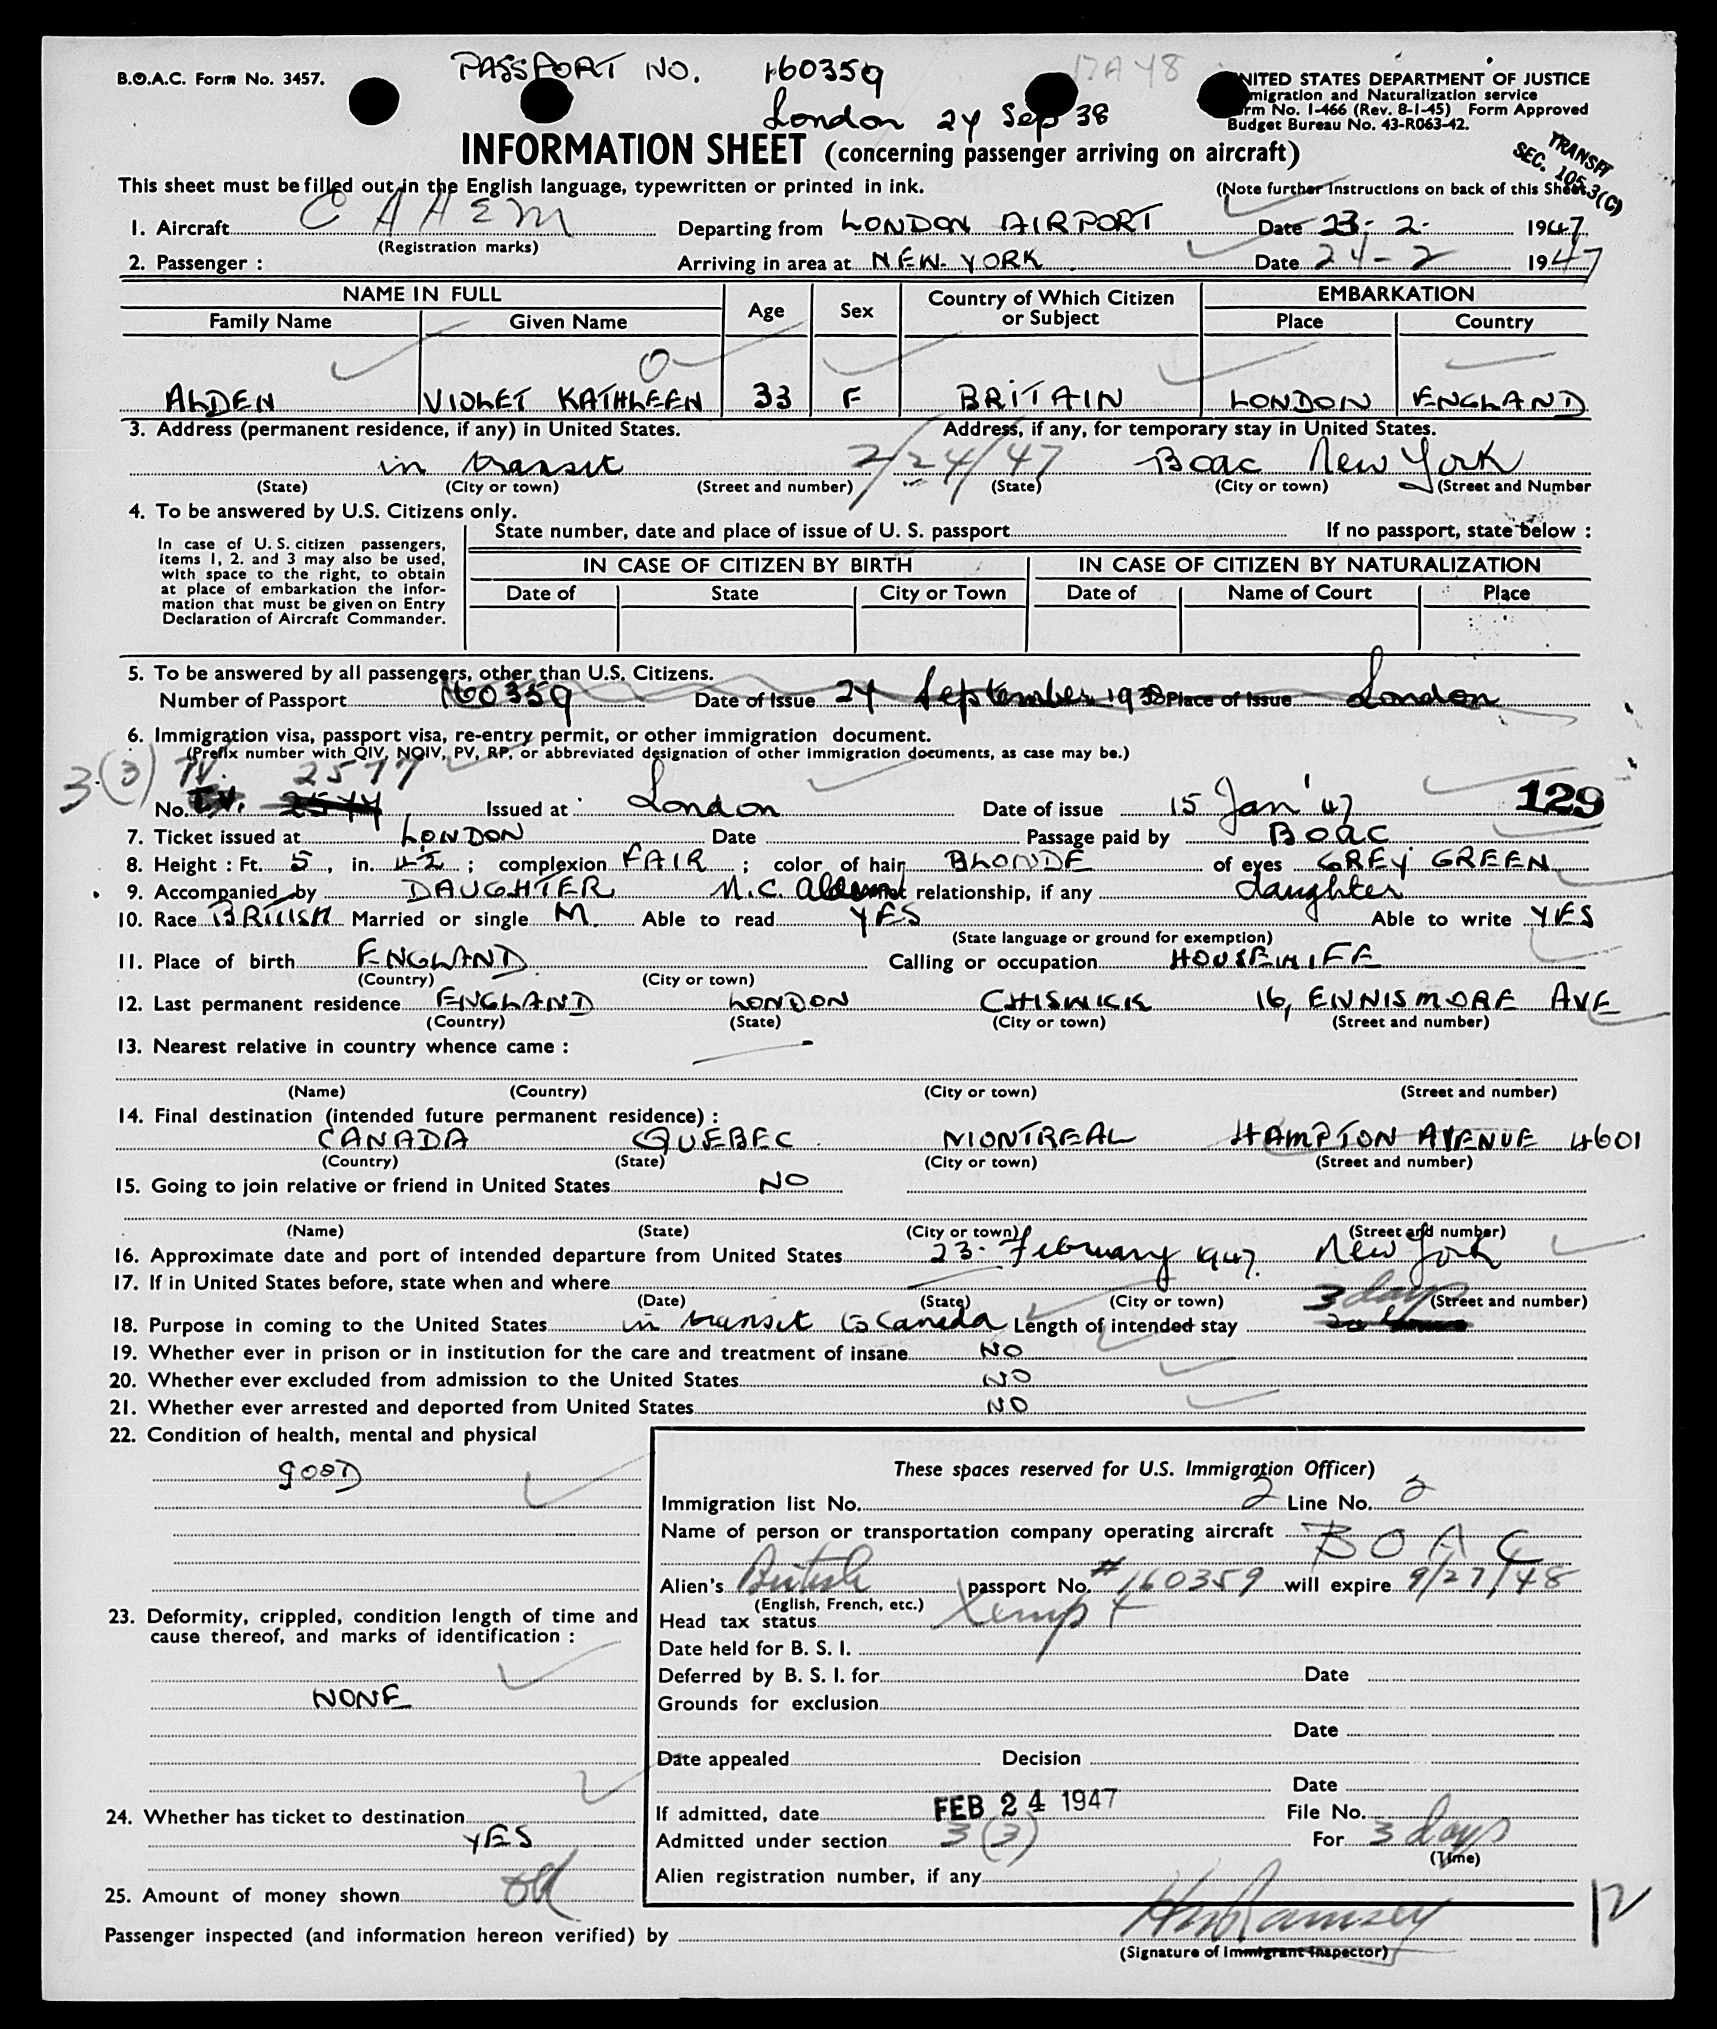 B.O.A.C. Form No. 3457.
PASSPORT NO. 160359
London 24 Sep 38
UNITED STATES DEPARTMENT OF JUSTICE
Immigration and Naturalization service
Form No. I-466 (Rev. 8-1-45) Form Approved
Budget Bureau No. 43-R063-42.
INFORMATION SHEET (concerning passenger arriving on aircraft)
TRANSIT
SEC. 105.3(C)
This sheet must be filled out in the English language, typewritten or printed in ink. (Note further instructions on back of this Sheet.
1. Aircraft C A H E M Departing from LONDON AIRPORT Date 23-2- 1947
(Registration marks)
2. Passenger : Arriving in area at NEW YORK Date 24-2 1947
NAME IN FULL Age Sex Country of Which Citizen or Subject EMBARKATION
Family Name Given Name Place Country
ALDEN VIOLET KATHLEEN 33 F BRITAIN LONDON ENGLAND
3. Address (permanent residence, if any) in United States. Address, if any, for temporary stay in United States.
in transit 2/24/47 Boac New York
(State) (City or town) (Street and number) (State) (City or town) (Street and Number
4. To be answered by U.S. Citizens only.
In case of U.S. citizen passengers, items 1, 2. and 3 may also be used, with space to the right, to obtain at place of embarkation the information that must be given on Entry Declaration of Aircraft Commander.
State number, date and place of issue of U. S. passport If no passport, state below :
IN CASE OF CITIZEN BY BIRTH IN CASE OF CITIZEN BY NATURALIZATION
Date of State City or Town Date of Name of Court Place
5. To be answered by all passengers, other than U.S. Citizens.
Number of Passport 160359 Date of Issue 24 September 1938 Place of Issue London
6. Immigration visa, passport visa, re-entry permit, or other immigration document.
(Prefix number with QIV, NQIV, PV, RP, or abbreviated designation of other immigration documents, as case may be.)
3(3) TV. 2577
No. Issued at London Date of issue 15 Jan '47 129
7. Ticket issued at LONDON Date Passage paid by BOAC
8. Height : Ft. 5, in. 4½ ; complexion FAIR ; color of hair BLONDE of eyes GREY GREEN
9. Accompanied by DAUGHTER M.C. Alden relationship, if any daughter
10. Race BRITISH Married or single M. Able to read YES Able to write YES
(State language or ground for exemption)
11. Place of birth ENGLAND Calling or occupation HOUSEWIFE
(Country) (City or town)
12. Last permanent residence ENGLAND LONDON CHISWICK 16, ENNISMORE AVE
(Country) (State) (City or town) (Street and number)
13. Nearest relative in country whence came :
(Name) (Country) (City or town) (Street and number)
14. Final destination (intended future permanent residence) :
CANADA QUEBEC MONTREAL HAMPTON AVENUE 4601
(Country) (State) (City or town) (Street and number)
15. Going to join relative or friend in United States NO
(Name) (State) (City or town) (Street and number)
16. Approximate date and port of intended departure from United States 23. February 1947. New York
17. If in United States before, state when and where
(Date) (State) (City or town) (Street and number)
3 days
18. Purpose in coming to the United States in transit to Canada Length of intended stay
19. Whether ever in prison or in institution for the care and treatment of insane NO
20. Whether ever excluded from admission to the United States NO
21. Whether ever arrested and deported from United States NO
22. Condition of health, mental and physical
GOOD
These spaces reserved for U.S. Immigration Officer)
Immigration list No. 2 Line No. 2
Name of person or transportation company operating aircraft B O A C
Alien's British passport No. #160359 will expire 9/27/48
(English, French, etc.)
Head tax status Xempt
Date held for B. S. I.
Deferred by B. S. I. for Date
Grounds for exclusion
Date
Date appealed Decision
Date
If admitted, date FEB 24 1947 File No.
Admitted under section 3(3) For 3 days
(Time)
Alien registration number, if any
23. Deformity, crippled, condition length of time and cause thereof, and marks of identification :
NONE
24. Whether has ticket to destination
YES
25. Amount of money shown
Passenger inspected (and information hereon verified) by
(Signature of Immigrant Inspector)
12